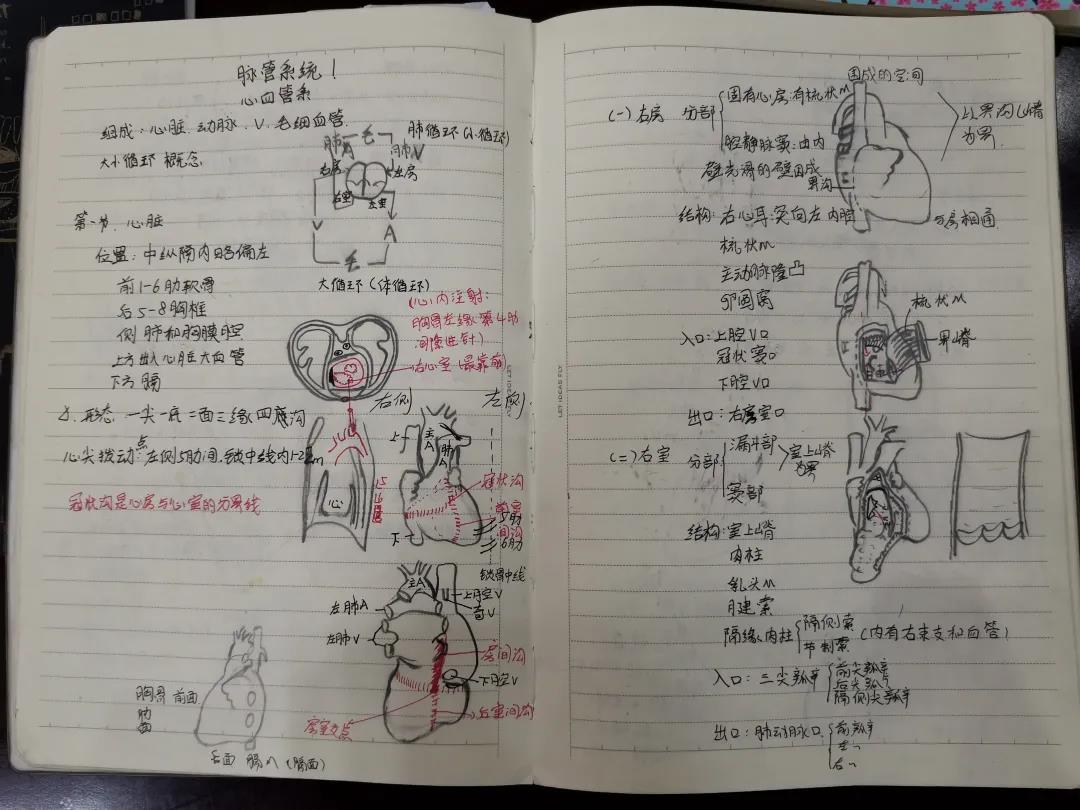 脉管系统1
心血管系
组成:心脏.动脉.V.毛细血管.
大小循环 概念
肺循环(小循环)
毛
肺A
肺V
右房
左房
右室
左室
V
A
毛
大循环(体循环)
第一节.心脏
位置:中纵隔内略偏左
前1-6肋软骨
后5-8胸椎
侧 肺和胸膜腔
上方出入心脏大血管
下方膈
(心内注射:
胸骨左缘第4肋
间隙进针)
右心室(最靠前)
2.形态 一尖一底二面三缘四条沟
心尖搏动点 左侧5肋间.锁中线内1-2cm
冠状沟是心房与心室的分界线
右侧
左侧
心
上
主A
肺A
冠状沟
前室间沟
5肋
6肋
下
锁骨中线
主A
左肺A
左肺V
上腔V
奇V
房间沟
下腔V
后室间沟
房室交点
胸骨 前面
肋面
后面 膈 (膈面)
(一)右房 分部
固有心房:有梳状M
腔静脉窦:由内
壁光滑的壁围成
围成的空间
以界沟(嵴
为界
界沟
与房相通
结构:右心耳:突向左 内腔
梳状M
主动脉隆凸
卵圆窝
入口:上腔V口
冠状窦口
下腔V口
出口:右房室口
梳状M
界嵴
(二)右室 分部
漏斗部
窦部
室上嵴
为界
结构:室上嵴
肉柱
乳头M
腱索
隔缘肉柱
隔侧索
节制索
(内有右束支和血管)
入口:三尖瓣
前尖瓣
后尖瓣
隔侧尖瓣
出口:肺动脉口
前瓣
左〃
右〃
LET IDEAS FLY
LET IDEAS FLY